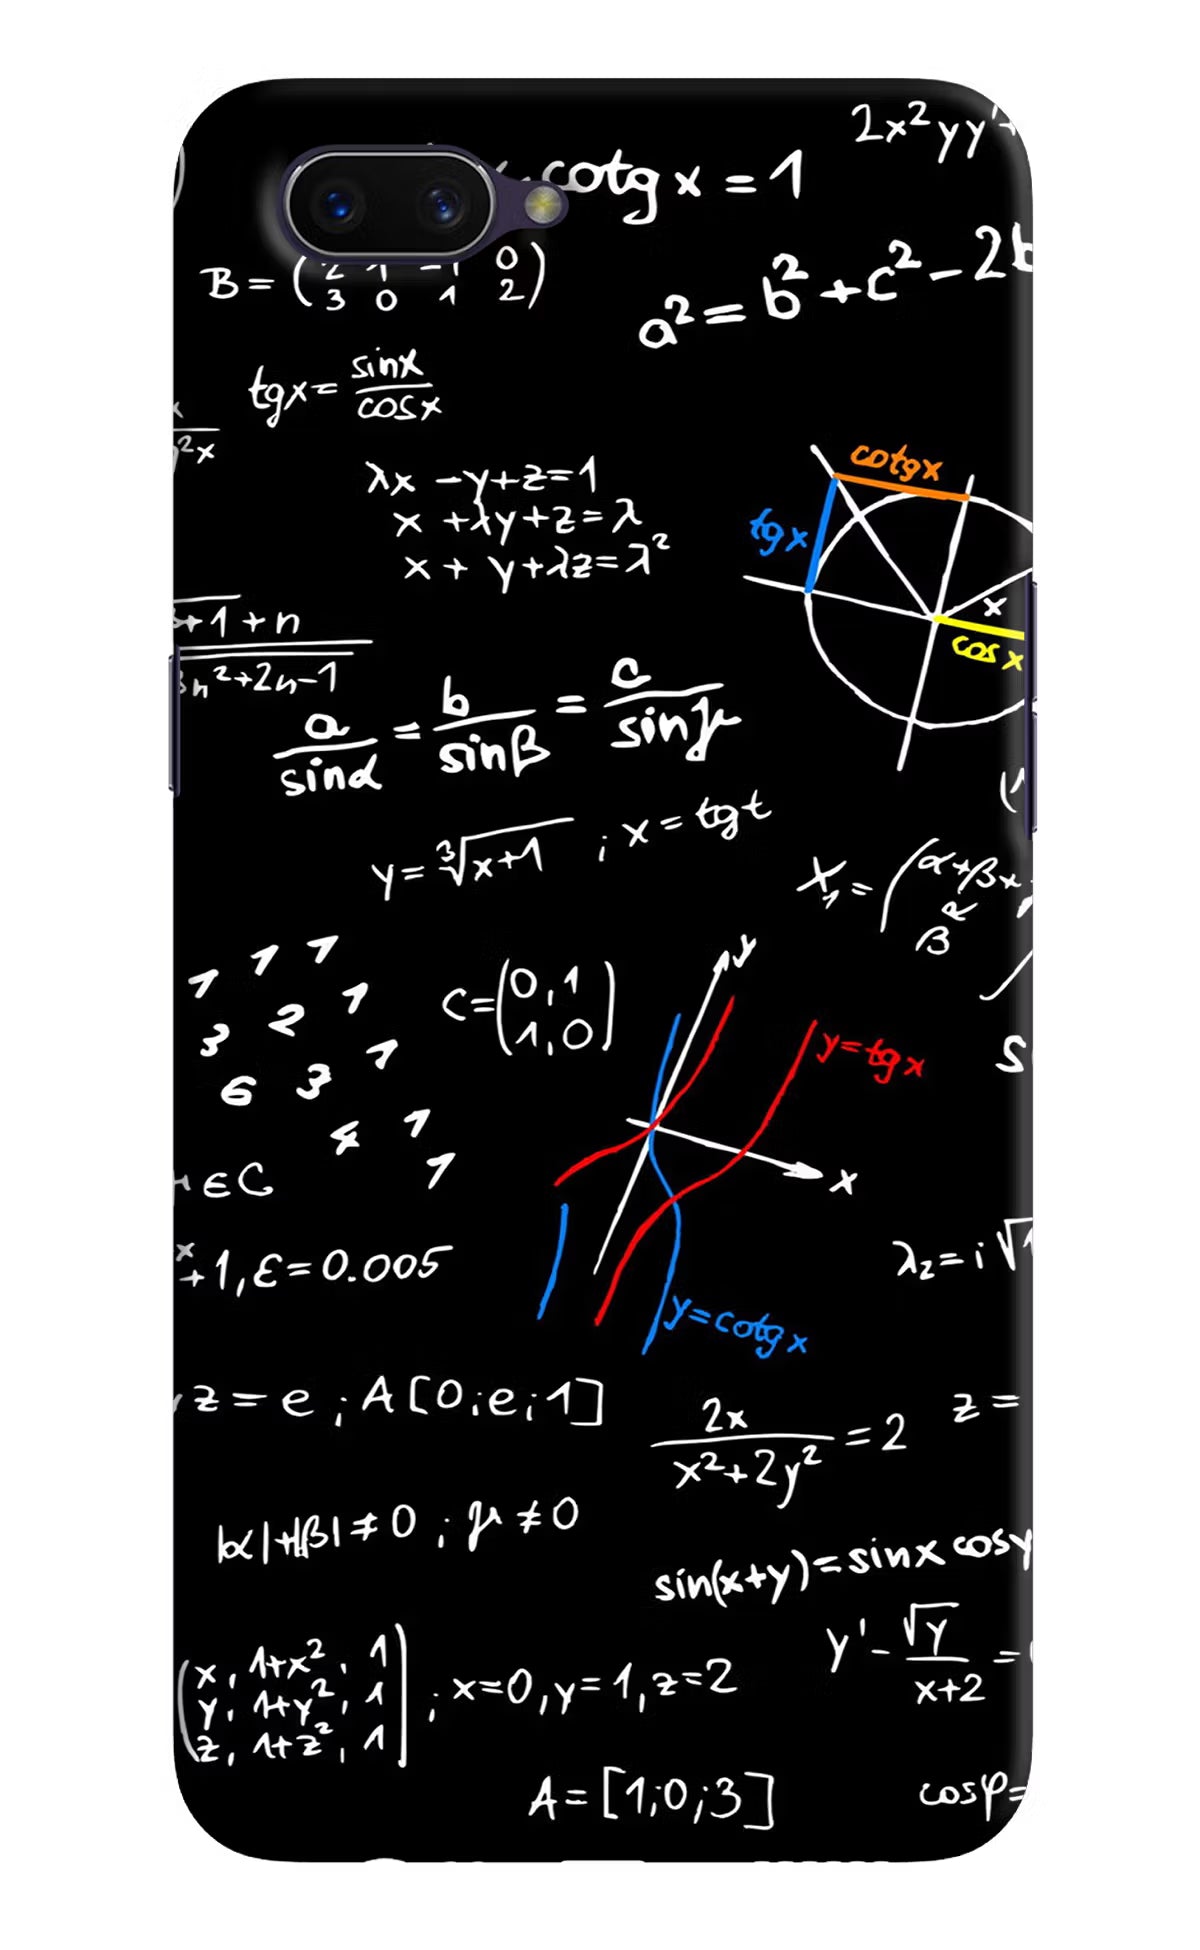 2x²yy'
cotg x = 1
B = ( 2 1 -1 0
3 0 1 2 )
a² = b² + c² - 2b
tgx = sinx / cosx
²x
λx - y + z = 1
x + λy + z = λ
x + y + λz = λ²
cotgx
tgx
x
cos x
+1 + n
3n² + 2n - 1
a / sinα = b / sinβ = c / sinγ
y = ∛(x+1) ; x = tgt
X₁ = ( α + βx
β R
1 1 1
3 2 1
6 3 1
4 1
1
C = ( 0, 1
1, 0 )
y
y = tgx
x
S
∈ C
x
+ 1, ε = 0.005
λ₂ = i√
y = cotgx
z = e ; A[0; e; 1]
2x / x² + 2y² = 2
z =
|α| + |β| ≠ 0 ; μ ≠ 0
sin(x+y) = sinx cosy
y' - √y / x+2 =
( x, 1+x², 1
y, 1+y², 1
z, 1+z², 1 ) ; x=0, y=1, z=2
A = [1; 0; 3]
cosφ =